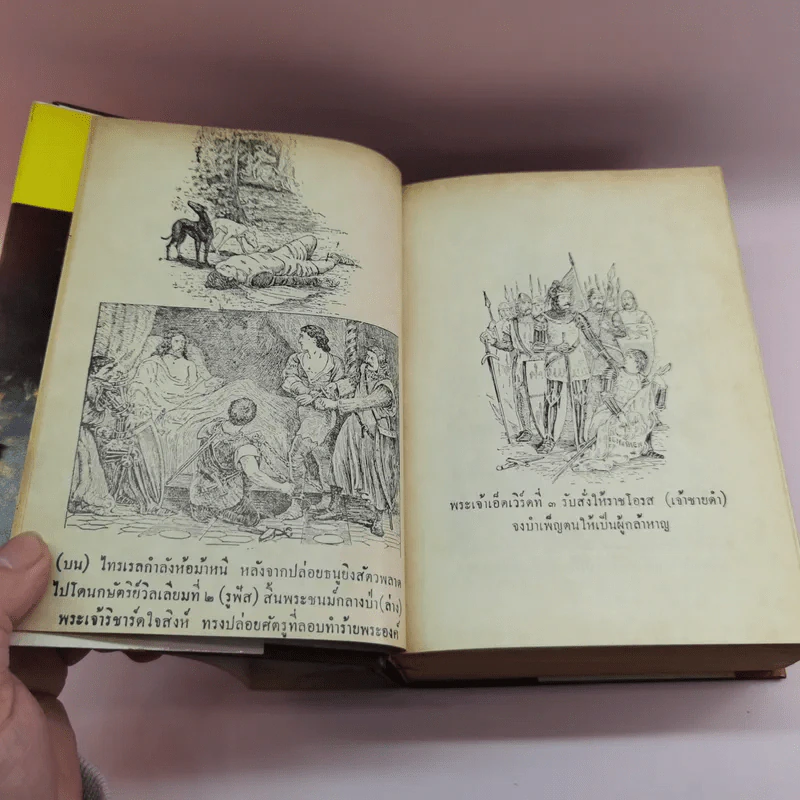 (บน) ไทรเรลกำลังห้อม้าหนี หลังจากปล่อยธนูยิงสัตวพลาด
ไปโดนกษัตริย์วิลเลียมที่ ๒ (รูฟัส) สิ้นพระชนม์กลางป่า (ล่าง)
พระเจ้าริชาร์ดใจสิงห์ ทรงปล่อยศัตรูที่ลอบทำร้ายพระองค์
พระเจ้าเอ็ดเวิร์ดที่ ๓ รับสั่งให้ราชโอรส (เจ้าชายดำ)
จงบำเพ็ญตนให้เป็นผู้กล้าหาญ